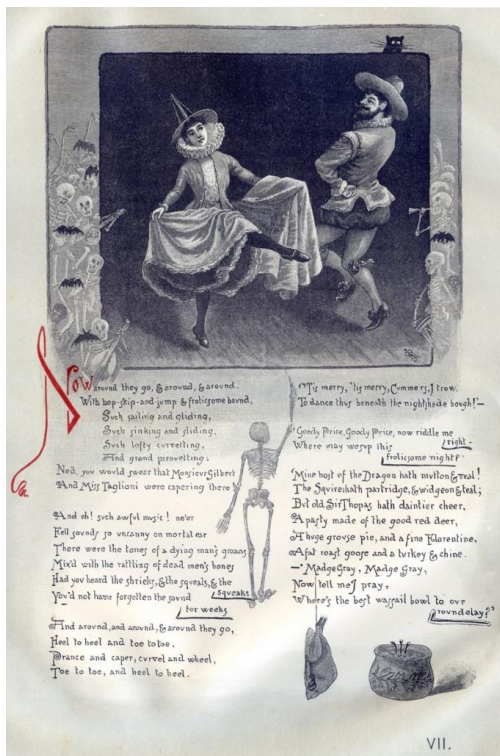 Now around they go, & around, & around,
With hop-skip-and-jump & frolicsome bound,
Such sailing and gliding,
Such sinking and sliding,
Such lofty curvetting,
And grand pirouetting;
Ned, you would swear that Monsieur Gilbert
And Miss Taglioni were capering there!
And oh! such awful music! ne'er
Fell sounds so uncanny on mortal ear
There were the tones of a dying man's groans
Mix'd with the rattling of dead men's bones
Had you heard the shrieks, & the squeals, & the
squeaks
You'd not have forgotten the sound
for weeks
And around, and around, & around they go,
Heel to heel and toe to toe,
Prance and caper, curvet and wheel,
Toe to toe, and heel to heel.
"'Tis merry, 'tis merry, Cummers, I trow,
To dance thus beneath the nightshade bough!"—
"Goody Price, Goody Price, now riddle me
right
Where may we sup this
frolicsome night?"
"Mine host of the Dragon hath mutton & veal!
The Squire hath partridge, & widgeon & teal;
But old Sir Thopas hath daintier cheer,
A pasty made of the good red deer,
A huge grouse pie, and a fine Florentine,
A fat roast goose and a turkey & chine.
—"Madge Gray, Madge Gray,
Now tell me I pray,
Where's the best wassail bowl to our
roundelay?"
VII.